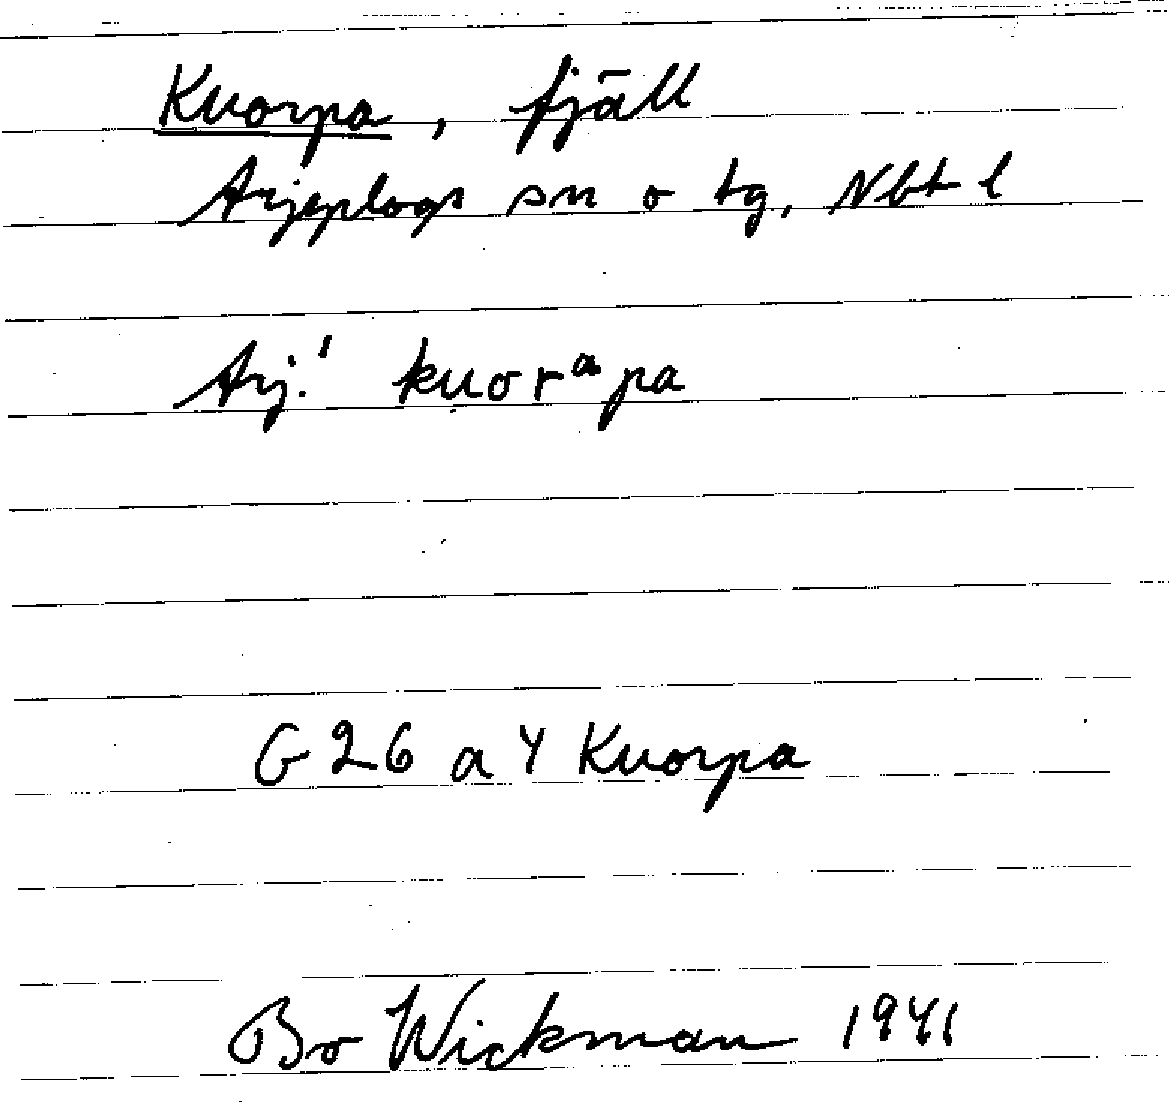 Kuorpa, fjäll
Arjeplogs sn o tg, Nbt l
Arj.' kuorᵃpa
G 26 a Y Kuorpa
Bo Wickman 1941